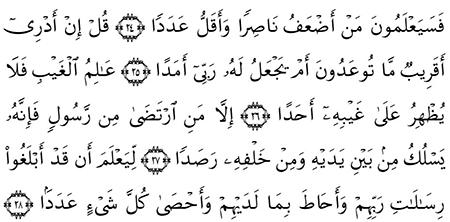 فَسَيَعْلَمُونَ مَنْ أَضْعَفُ نَاصِرًا وَأَقَلُّ عَدَدًا ﴿٢٤﴾ قُلْ إِنْ أَدْرِىٓ
أَقَرِيبٌ مَّا تُوعَدُونَ أَمْ يَجْعَلُ لَهُۥ رَبِّىٓ أَمَدًا ﴿٢٥﴾ عَـٰلِمُ الْغَيْبِ فَلَا
يُظْهِرُ عَلَىٰ غَيْبِهِۦٓ أَحَدًا ﴿٢٦﴾ إِلَّا مَنِ ٱرْتَضَىٰ مِن رَّسُولٍ فَإِنَّهُۥ
يَسْلُكُ مِنۢ بَيْنِ يَدَيْهِ وَمِنْ خَلْفِهِۦ رَصَدًا ﴿٢٧﴾ لِّيَعْلَمَ أَن قَدْ أَبْلَغُوا۟
رِسَـٰلَـٰتِ رَبِّهِمْ وَأَحَاطَ بِمَا لَدَيْهِمْ وَأَحْصَىٰ كُلَّ شَىْءٍ عَدَدًۢا ﴿٢٨﴾